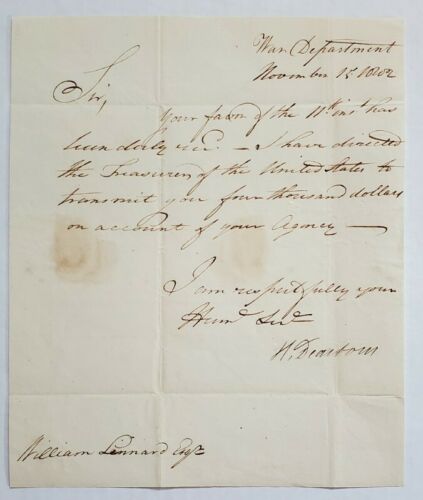 War Department
November 15 1802
Sir,
Your favor of the 11th inst has
been duly rec. — I have directed
the Treasurer of the United States to
transmit you four thousand dollars
on account of your Agency —
I am respectfully your
Humb Serv
H. Dearborn
William Linnard Esqr